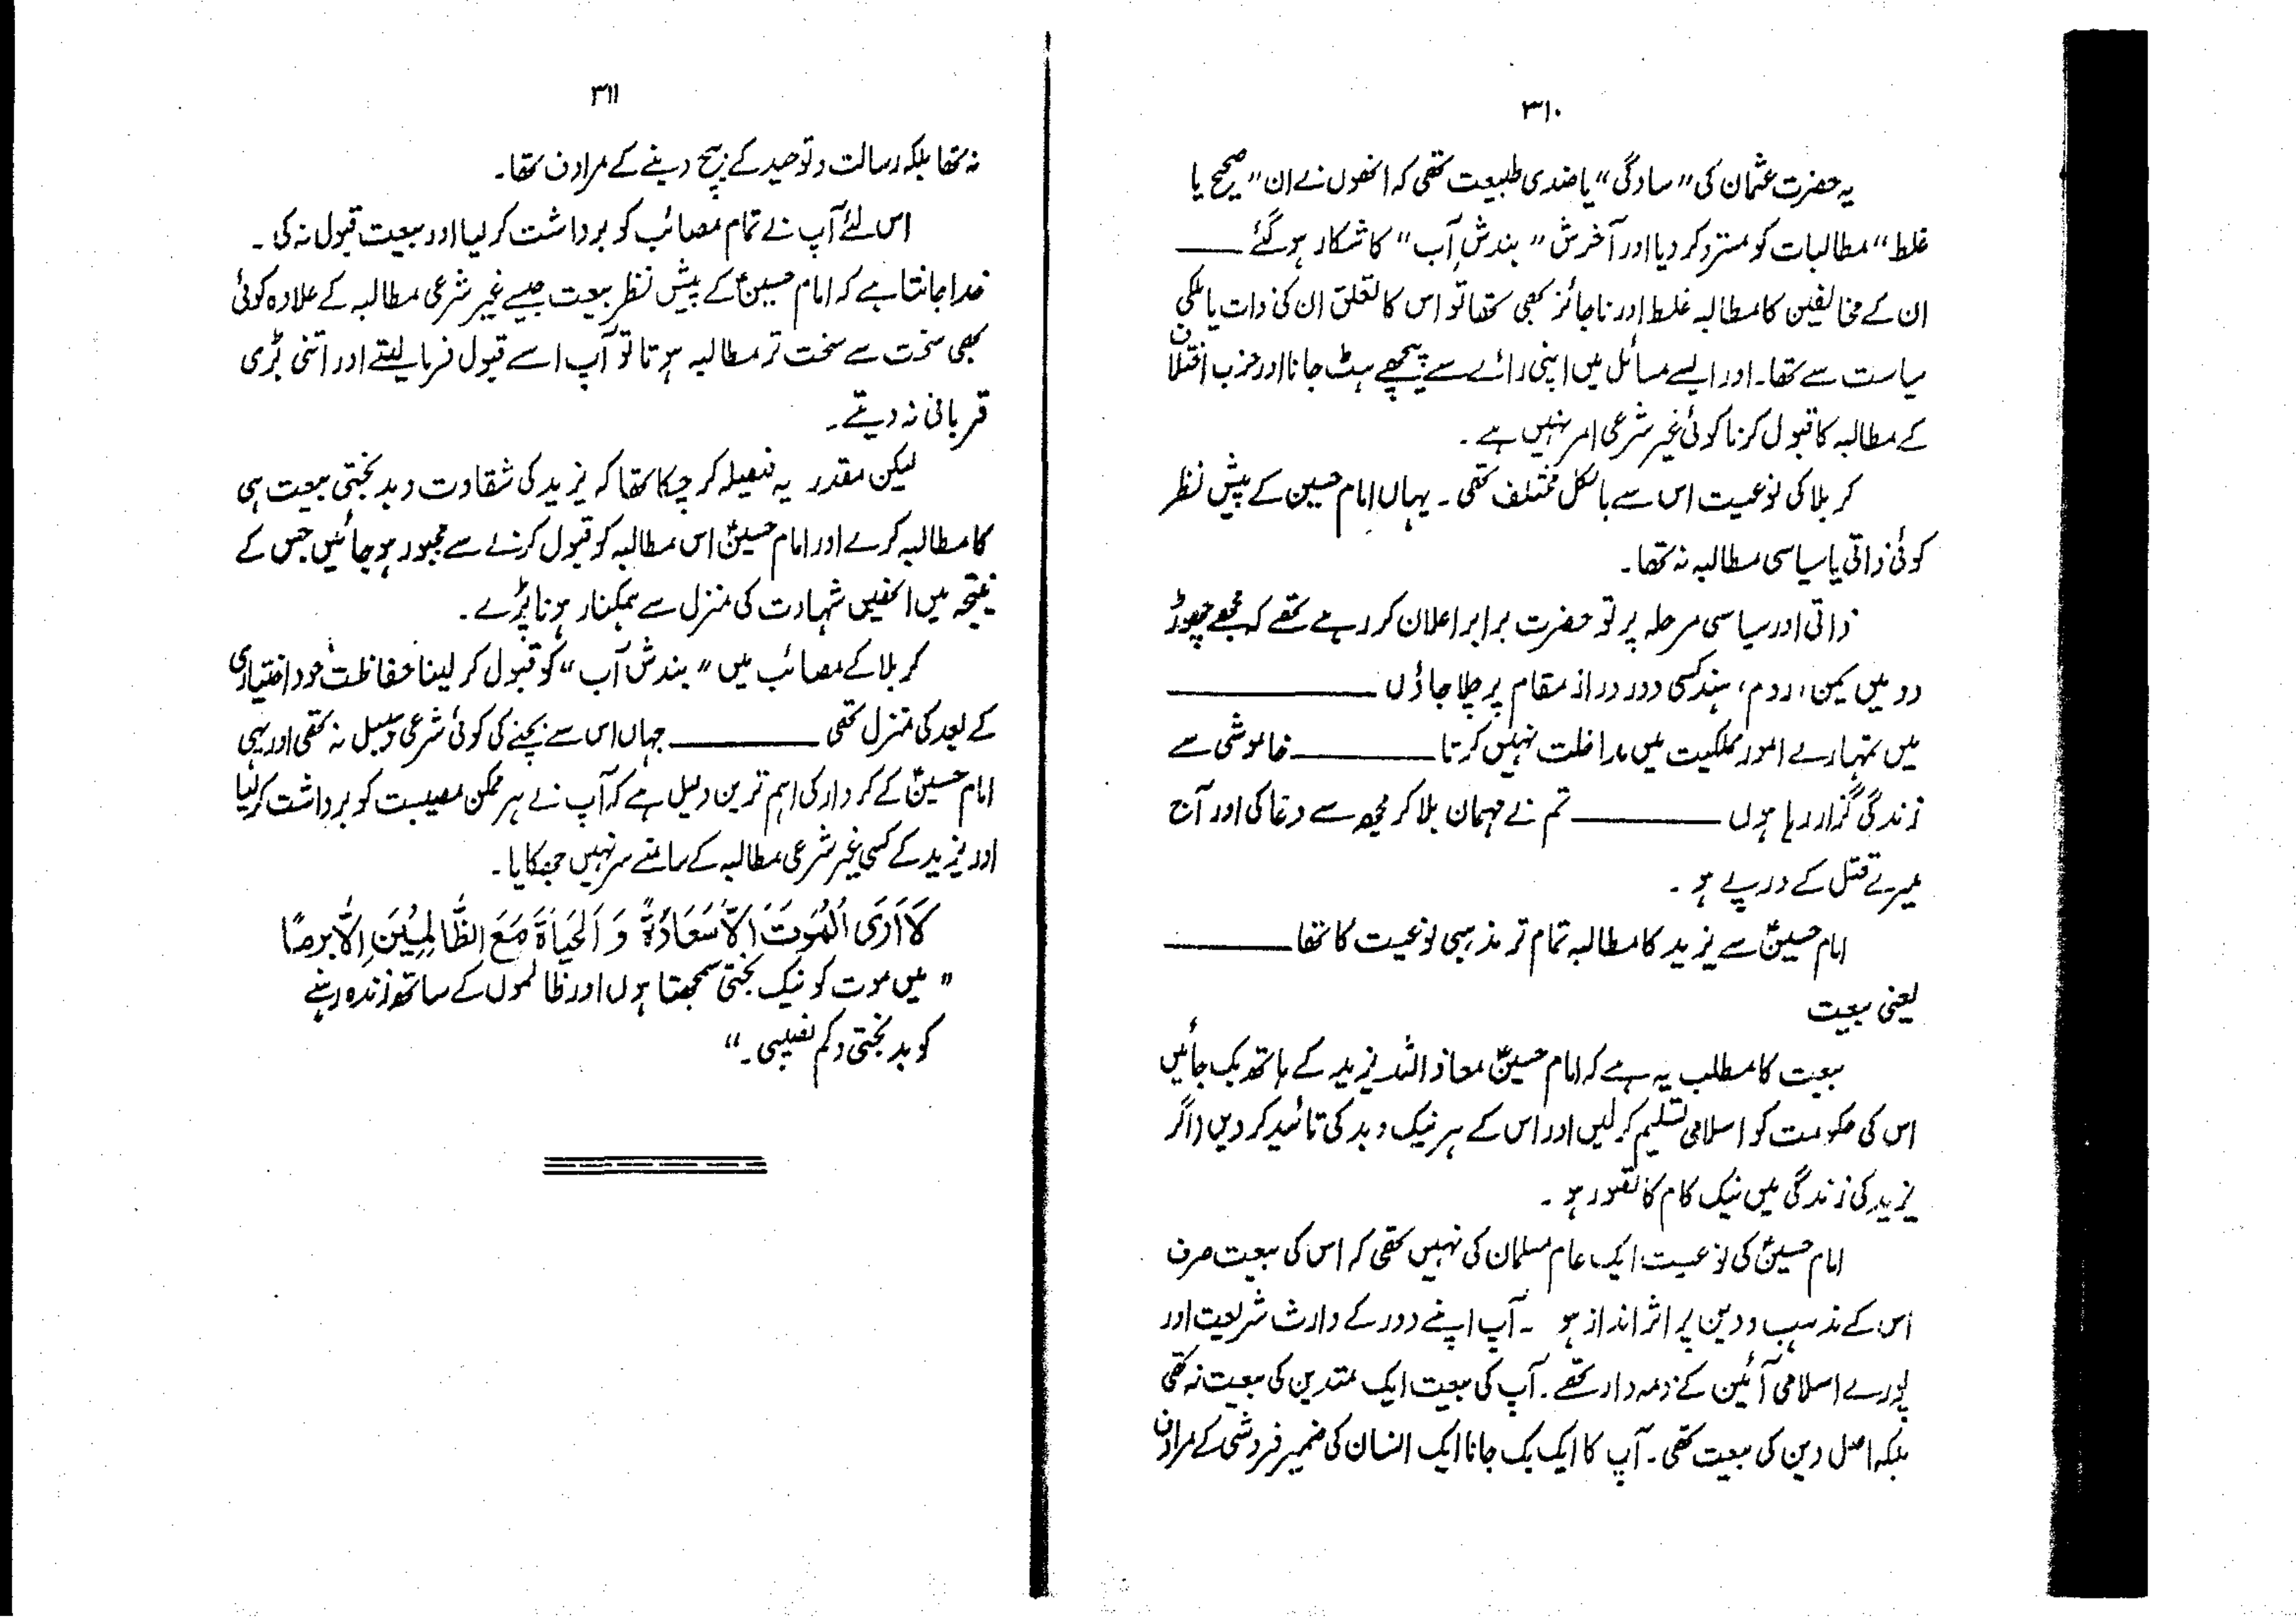 ۳۱۰
یہ حضرت عثمان کی "سادگی" یا ضدی طبیعت تھی کہ انھوں نے ان "صحیح یا
غلط" مطالبات کو مسترد کر دیا اور آخرش "بندشِ آب" کا شکار ہو گئے ـــــ
ان کے مخالفین کا مطالبہ غلط اور ناجائز بھی تھا تو اس کا تعلق ان کی ذات یا ملکی
سیاست سے تھا۔ اور ایسے مسائل میں اپنی رائے سے پیچھے ہٹ جانا اور حزب اختلاف
کے مطالبہ کا قبول کرنا کوئی غیر شرعی امر نہیں ہے۔
کربلا کی نوعیت اس سے بالکل مختلف تھی۔ یہاں امام حسین کے پیش نظر
کوئی ذاتی یا سیاسی مطالبہ نہ تھا۔
ذاتی اور سیاسی مرحلہ پر تو حضرت برابر اعلان کر رہے تھے کہ مجھے چھوڑ
دو میں یمن، روم، ہند کسی دور دراز مقام پر چلا جاؤں ـــــ
میں تمہارے امور مملکیت میں مداخلت نہیں کرتا ـــــ خاموشی سے
زندگی گزار رہا ہوں ـــــ تم نے مہمان بلا کر مجھ سے دغا کی اور آج
میرے قتل کے درپے ہو۔
امام حسینؑ سے یزید کا مطالبہ تمام تر مذہبی نوعیت کا تھا ـــــ
یعنی بیعت
بیعت کا مطلب یہ ہے کہ امام حسینؑ معاذ اللہ یزید کے ہاتھ بک جائیں
اس کی حکومت کو اسلامی تسلیم کر لیں اور اس کے ہر نیک و بد کی تائید کر دیں (اگر
یزید کی زندگی میں نیک کام کا تصور ہو۔
امام حسینؑ کی نوعیت ایک عام مسلمان کی نہیں تھی کہ اس کی بیعت صرف
اس کے مذہب و دین پر اثر انداز ہو ۔ آپ اپنے دور کے وارث شریعت اور
پورے اسلامی آئین کے ذمہ دار تھے۔ آپ کی بیعت ایک متدین کی بیعت نہ تھی
بلکہ اصل دین کی بیعت تھی۔ آپ کا ایک بک جانا ایک انسان کی ضمیر فروشی کے مرادف
۳۱۱
نہ تھا بلکہ رسالت و توحید کے بیچ دینے کے مرادف تھا۔
اس لئے آپ نے تمام مصائب کو برداشت کر لیا اور بیعت قبول نہ کی۔
خدا جانتا ہے کہ امام حسینؑ کے پیش نظر بیعت جیسے غیر شرعی مطالبہ کے علاوہ کوئی
بھی سخت سے سخت تر مطالبہ ہوتا تو آپ اسے قبول فرما لیتے اور اتنی بڑی
قربانی نہ دیتے۔
لیکن مقدر یہ فیصلہ کر چکا تھا کہ یزید کی شقاوت و بدبختی بیعت ہی
کا مطالبہ کرے اور امام حسینؑ اس مطالبہ کو قبول کرنے سے مجبور ہو جائیں جس کے
نتیجہ میں انھیں شہادت کی منزل سے ہمکنار ہونا پڑے۔
کربلا کے مصائب میں "بندش آب" کو قبول کر لینا حفاظت خود اختیاری
کے بعد کی منزل تھی ـــــ جہاں اس سے بچنے کی کوئی شرعی سبیل نہ تھی اور یہی
امام حسینؑ کے کردار کی اہم ترین دلیل ہے کہ آپ نے ہر ممکن مصیبت کو برداشت کر لیا
اور یزید کے کسی غیر شرعی مطالبہ کے سامنے سر نہیں جھکایا۔
لَا اَرَی الْمَوْتَ اِلَّا سَعَادَۃً وَ الْحَیَاۃَ مَعَ الظَّالِمِیْنَ اِلَّا بَرَمًا
"میں موت کو نیک بختی سمجھتا ہوں اور ظالموں کے ساتھ زندہ رہنے
کو بدبختی و کم نصیبی۔"